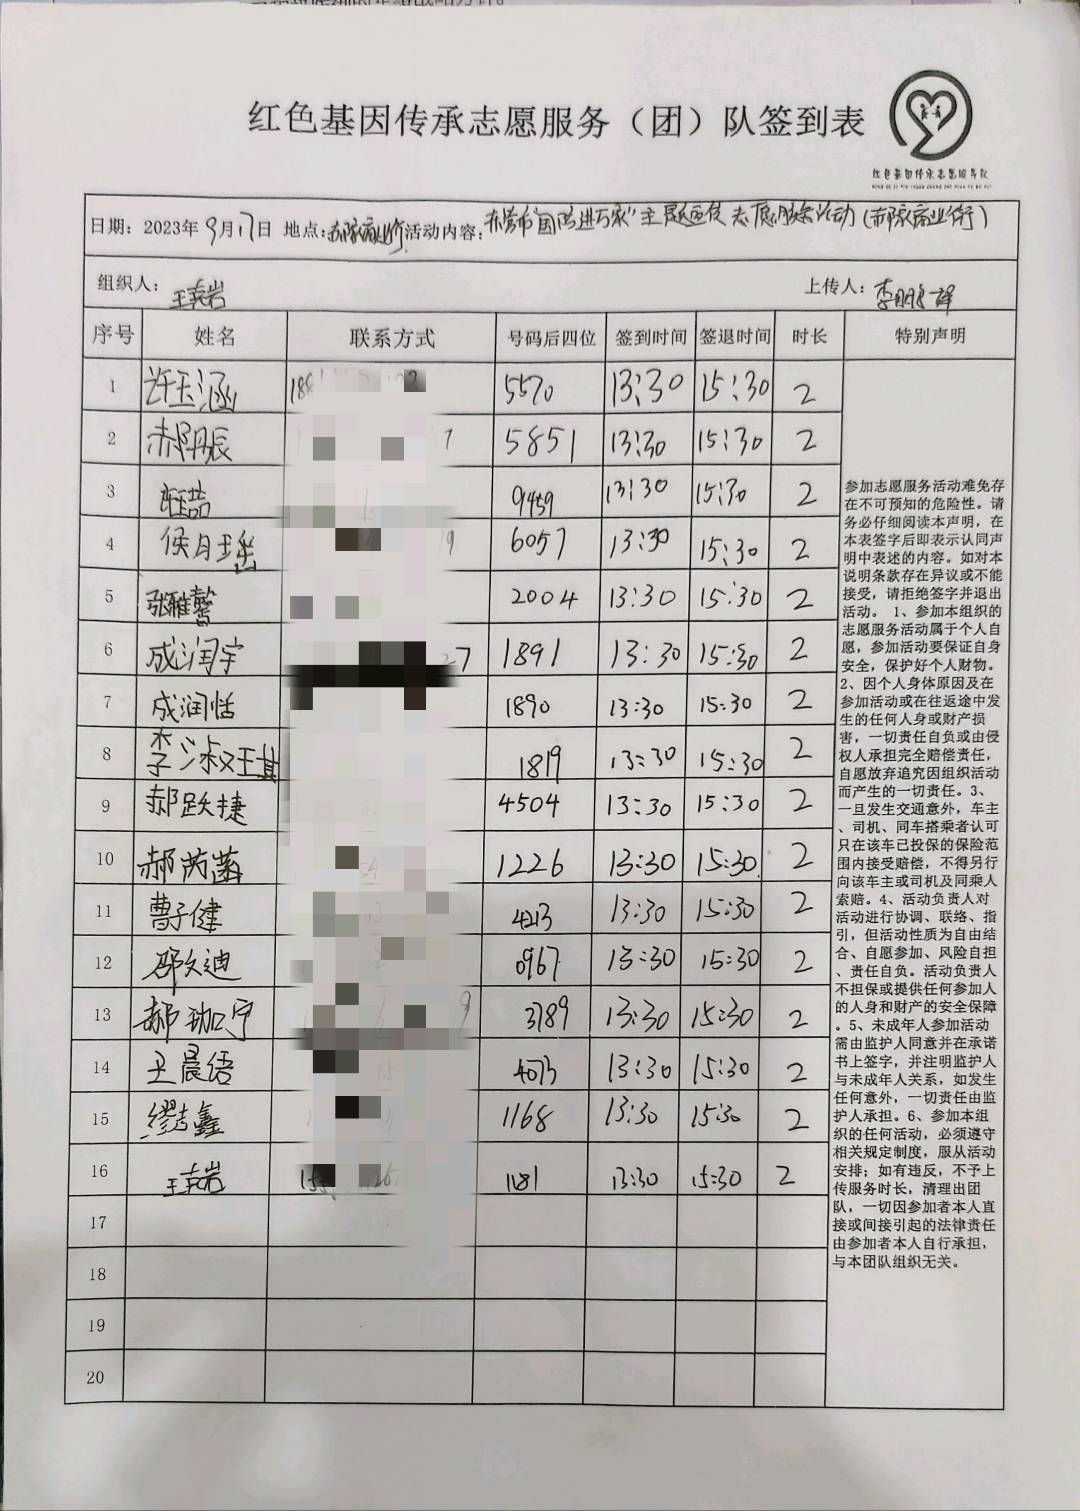 红色基因传承志愿服务（团）队签到表
红色基因传承志愿服务队
日期：2023年9月17日 地点：郝家商业街 活动内容：东营市"国防进万家"主题宣传志愿服务活动（郝家商业街）
组织人： 上传人：李鹏
序号 姓名 联系方式 号码后四位 签到时间 签退时间 时长 特别声明
1 许玉涵 188 5570 13:30 15:30 2
2 郝丹辰 7 5851 13:30 15:30 2
3 9459 13:30 15:30 2
4 侯月瑶 6057 13:30 15:30 2
5 张雅馨 2004 13:30 15:30 2
6 成润宇 27 1891 13:30 15:30 2
7 成润恬 1890 13:30 15:30 2
8 李淑琪 1819 13:30 15:30 2
9 郝跃捷 4504 13:30 15:30 2
10 郝芮菡 1226 13:30 15:30 2
11 曹子健 4213 13:30 15:30 2
12 邵文迪 0967 13:30 15:30 2
13 郝珈宁 9 3789 13:30 15:30 2
14 王晨语 4073 13:30 15:30 2
15 鑫 1168 13:30 15:30 2
16 1181 13:30 15:30 2
17
18
19
20
参加志愿服务活动难免存
在不可预知的危险性。请
务必仔细阅读本声明，在
本表签字后即表示认同声
明中表述的内容。如对本
说明条款存在异议或不能
接受，请拒绝签字并退出
活动。 1、参加本组织的
志愿服务活动属于个人自
愿，参加活动要保证自身
安全，保护好个人财物。
2、因个人身体原因及在
参加活动或在往返途中发
生的任何人身或财产损
害，一切责任自负或由侵
权人承担完全赔偿责任，
自愿放弃追究因组织活动
而产生的一切责任。3、
一旦发生交通意外，车主
、司机、同车搭乘者认可
只在该车已投保的保险范
围内接受赔偿，不得另行
向该车主或司机及同乘人
索赔。4、活动负责人对
活动进行协调、联络、指
引，但活动性质为自由结
合、自愿参加、风险自担
、责任自负。活动负责人
不担保或提供任何参加人
的人身和财产的安全保障
。5、未成年人参加活动
需由监护人同意并在承诺
书上签字，并注明监护人
与未成年人关系，如发生
任何意外，一切责任由监
护人承担。6、参加本组
织的任何活动，必须遵守
相关规定制度，服从活动
安排；如有违反，不予上
传服务时长，清理出团
队，一切因参加者本人直
接或间接引起的法律责任
由参加者本人自行承担，
与本团队组织无关。